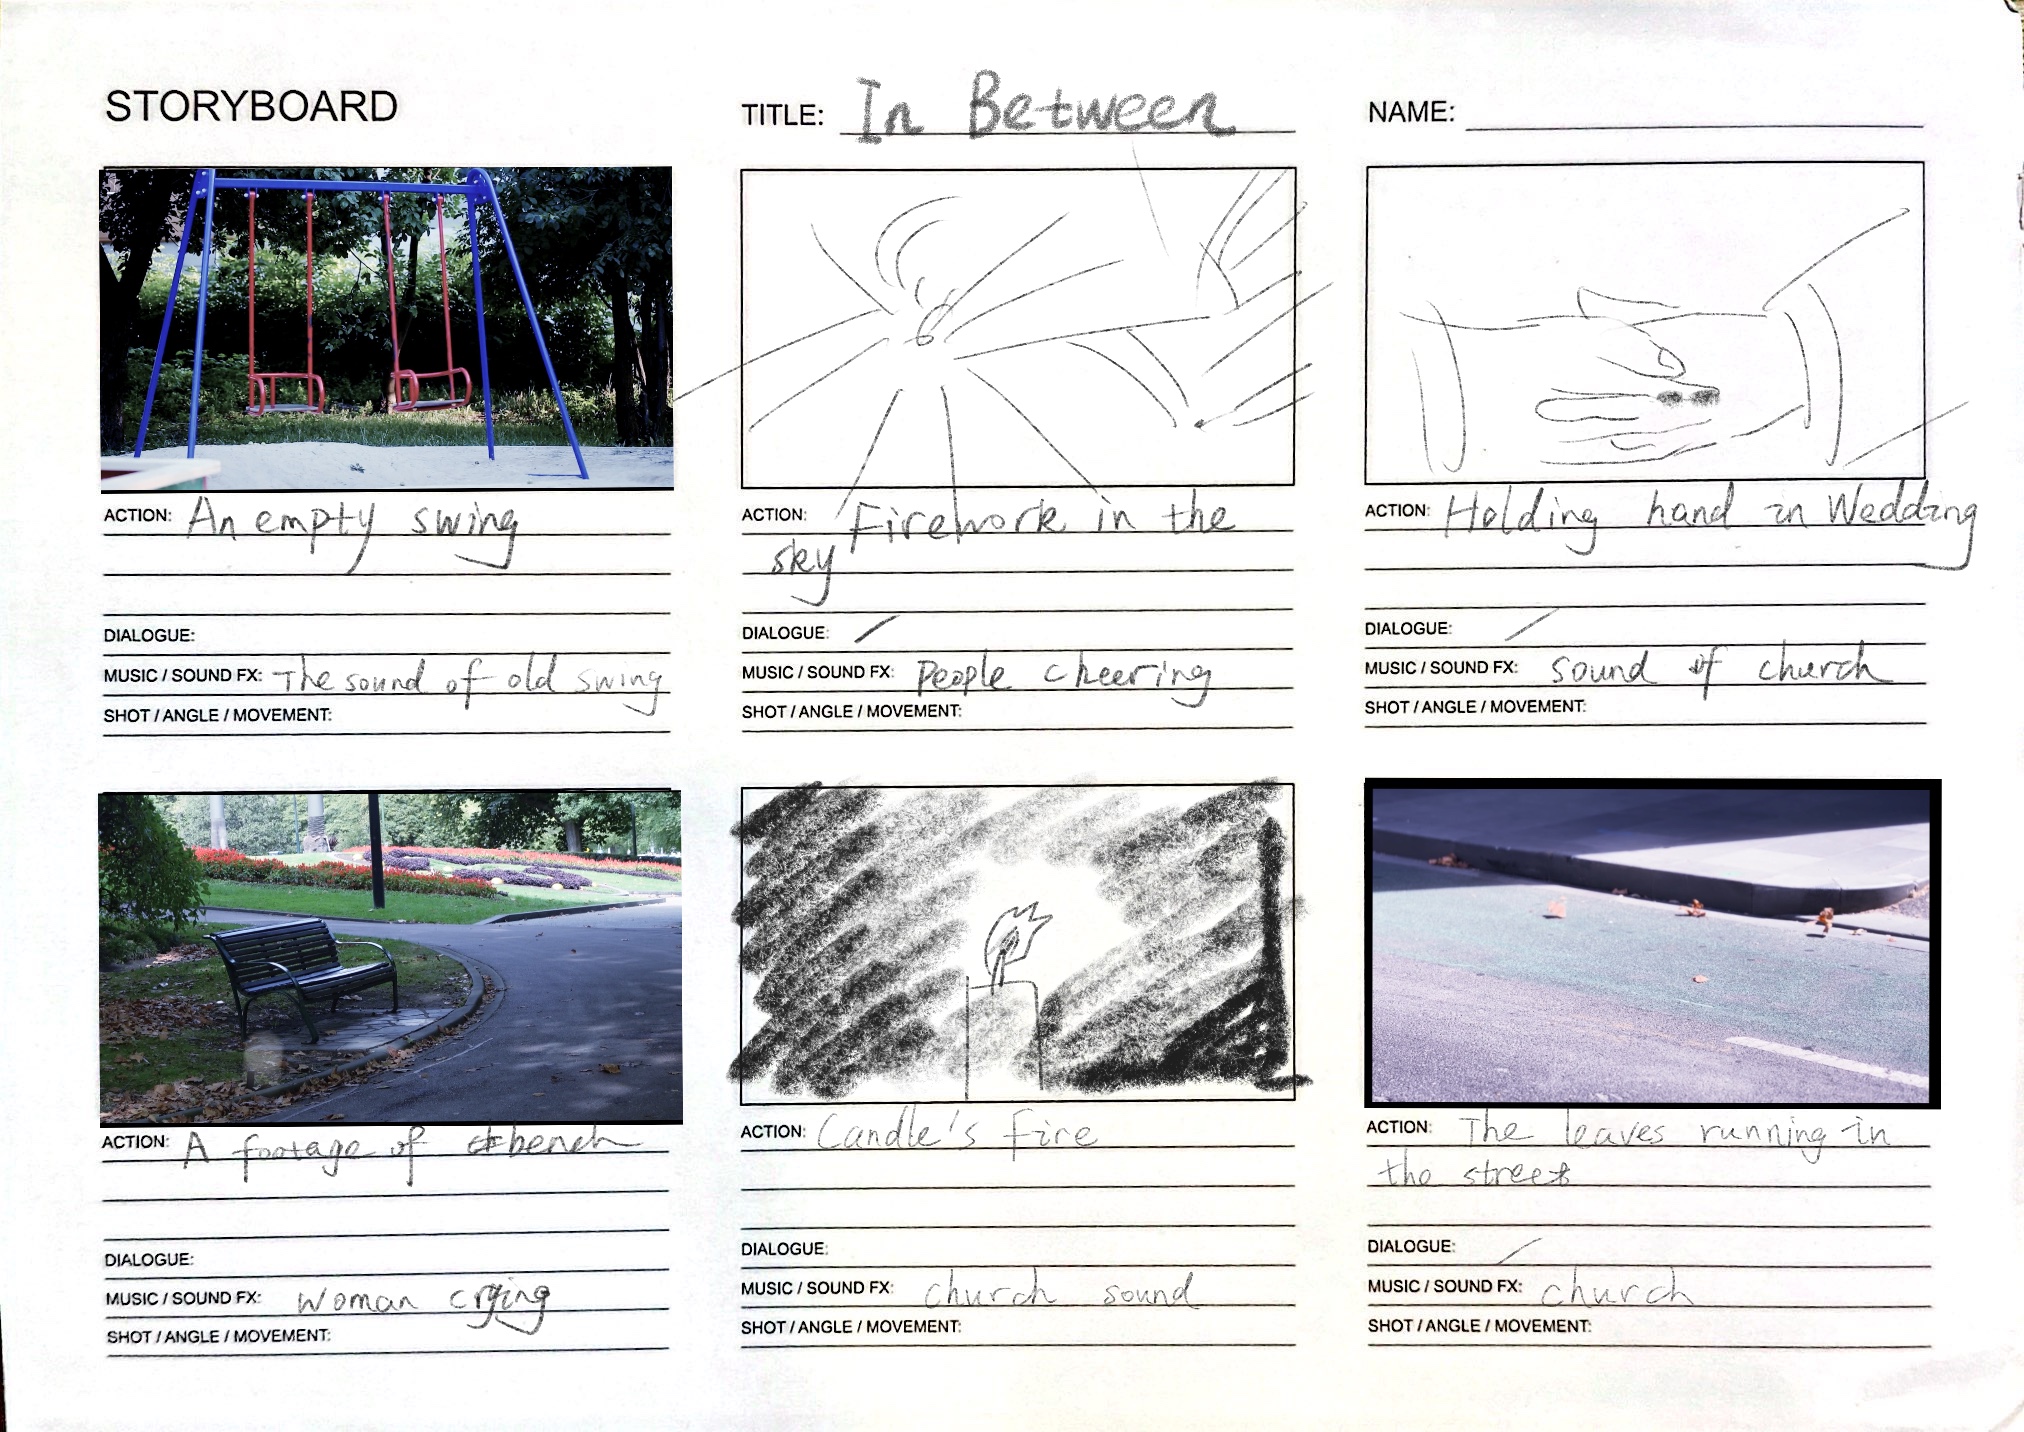 STORYBOARD
TITLE: In Between
NAME:
ACTION: An empty swing
DIALOGUE:
MUSIC / SOUND FX: The sound of old swing
SHOT / ANGLE / MOVEMENT:
ACTION: Firework in the
sky
DIALOGUE: /
MUSIC / SOUND FX: People cheering
SHOT / ANGLE / MOVEMENT:
ACTION: Holding hand in Wedding
DIALOGUE: /
MUSIC / SOUND FX: sound of church
SHOT / ANGLE / MOVEMENT:
ACTION: A footage of bench
DIALOGUE:
MUSIC / SOUND FX: Woman crying
SHOT / ANGLE / MOVEMENT:
ACTION: Candle's fire
DIALOGUE:
MUSIC / SOUND FX: church sound
SHOT / ANGLE / MOVEMENT:
ACTION: The leaves running in
the street
DIALOGUE: /
MUSIC / SOUND FX: church
SHOT / ANGLE / MOVEMENT: